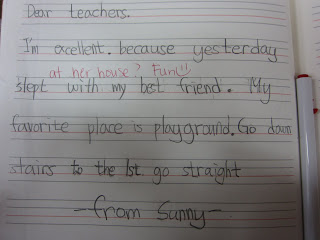 Dear teachers.
I'm excellent. because yesterday
at her house? Fun!☺
slept with my best friend. My
favorite place is playground. Go down
stairs to the 1st. go straight
-from Sunny-